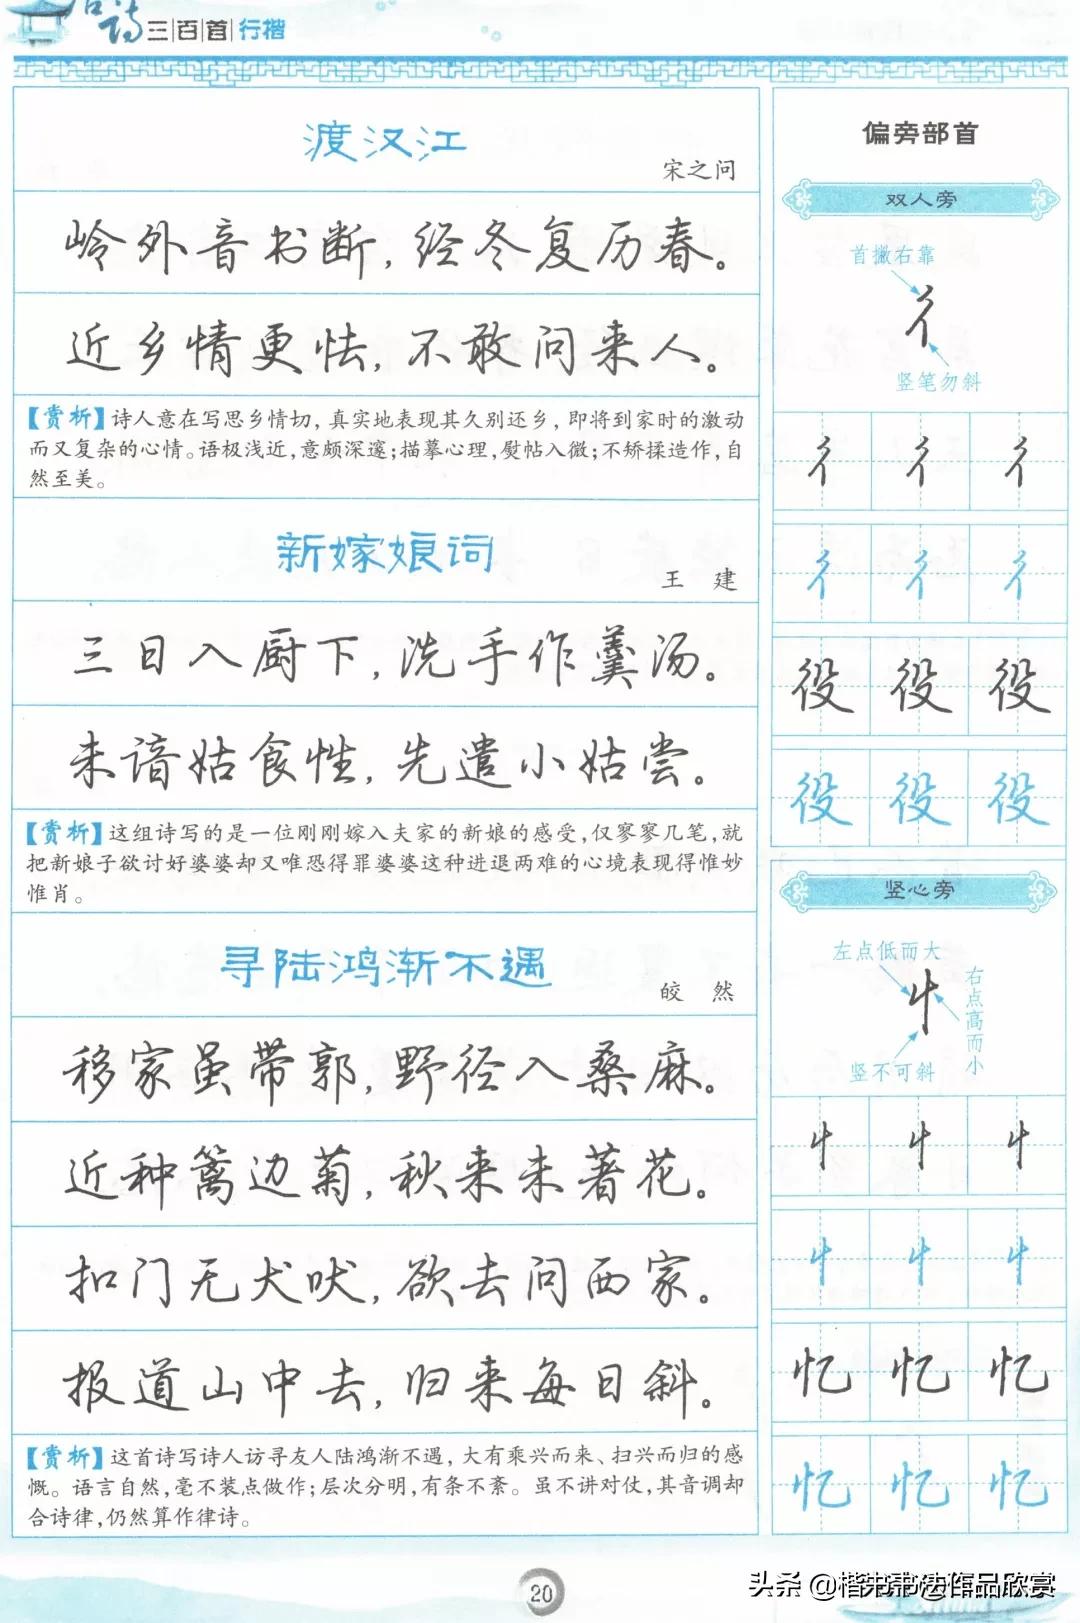 古诗三百首 行楷
渡汉江
宋之问
岭外音书断，经冬复历春。
近乡情更怯，不敢问来人。
【赏析】诗人意在写思乡情切，真实地表现其久别还乡，即将到家时的激动
而又复杂的心情。语极浅近，意颇深邃；描摹心理，熨帖入微；不矫揉造作，自
然至美。
新嫁娘词
王 建
三日入厨下，洗手作羹汤。
未谙姑食性，先遣小姑尝。
【赏析】这组诗写的是一位刚刚嫁入夫家的新娘的感受，仅寥寥几笔，就
把新娘子欲讨好婆婆却又唯恐得罪婆婆这种进退两难的心境表现得惟妙
惟肖。
寻陆鸿渐不遇
皎 然
移家虽带郭，野径入桑麻。
近种篱边菊，秋来未著花。
扣门无犬吠，欲去问西家。
报道山中去，归来每日斜。
【赏析】这首诗写诗人访寻友人陆鸿渐不遇，大有乘兴而来、扫兴而归的感
慨。语言自然，毫不装点做作；层次分明，有条不紊。虽不讲对仗，其音调却
合诗律，仍然算作律诗。
偏旁部首
双人旁
首撇右靠
彳
竖笔勿斜
彳 彳 彳
彳 彳 彳
役 役 役
役 役 役
竖心旁
左点低而大
忄
右点高而小
竖不可斜
忄 忄 忄
忄 忄 忄
忆 忆 忆
忆 忆 忆
20
头条 @楷书书法作品欣赏